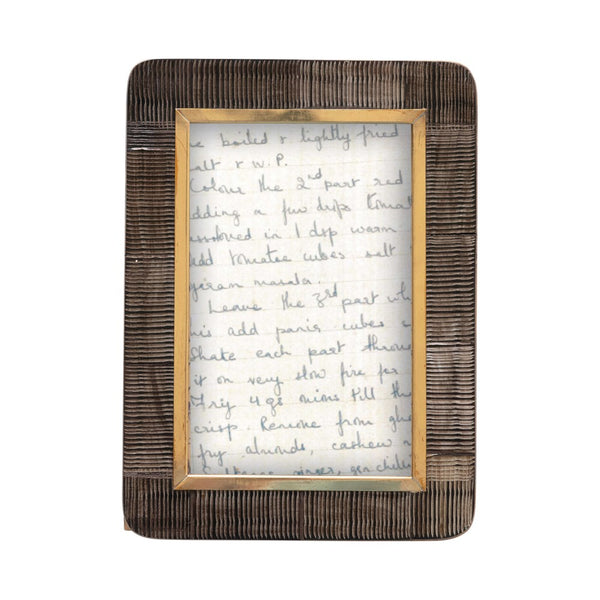 e boiled & lightly fried
alt & W.P.
Colour the 2nd part red
dding a few drops tomat
issolved in 1 dsp warm
dd tomatoe cubes salt
garam masala.
Leave the 3rd part whi
his add panir cubes
Shake each part throu
it on very slow fire for
Fry 4 gs onions till the
crisp. Remove from ghe
fry almonds, cashew n
ginger, grn chili